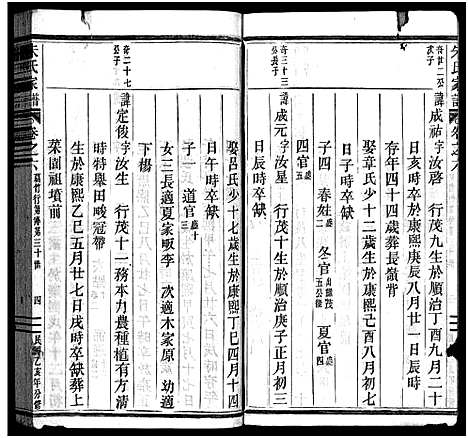 朱氏家譜 卷之六
奇世二公
次子
諱成祐字汝啓 行茂九生於順治丁酉九月二十
日亥時卒於康熙庚辰八月廿一日辰時
存年四十四歲葬長嶺背
娶章氏少十二歲生於康熙己酉八月初七
子四 春姓 冬官 夏官四
四官五
奇三十三
公長子
諱成元字汝星 行茂十生於順治庚子正月初三
日辰時卒缺
娶呂氏少十七歲生於康熙丁巳四月十四
日午時卒缺
子一 道官
女三長適夏家畈李 次適木家原 幼適
下楊
奇二十七
公子
諱定後字汝生 行茂十一務本力農種植有方大
時特舉田畯冠帶
生於康熙乙巳五月廿七日戌時卒缺葬上
菜園祖墳前
朱氏家譜 卷之六 第三十世 四 民國乙亥年分修